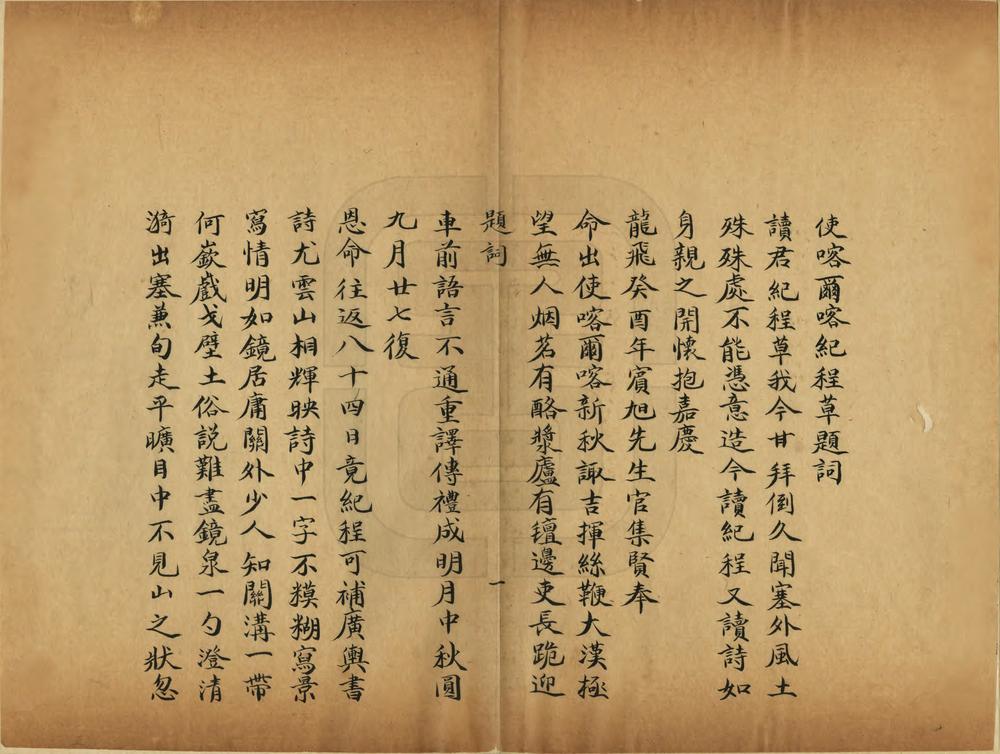 使喀爾喀紀程草題詞
讀君紀程草我今甘拜倒久聞塞外風土
殊殊處不能憑意造今讀紀程又讀詩如
身親之開懷抱嘉慶
龍飛癸酉年賓旭先生官集賢奉
命出使喀爾喀新秋諏吉揮絲鞭大漠極
望無人烟茗有酪漿廬有氊邊吏長跪迎
題詞
一
車前語言不通重譯傳禮成明月中秋圓
九月廿七復
恩命往返八十四日竟紀程可補廣輿書
詩尤雲山相輝映詩中一字不糢糊寫景
寫情明如鏡居庸關外少人知關溝一帶
何嶔巇戈壁土俗說難盡鏡泉一勺澄清
漪出塞兼旬走平曠目中不見山之狀忽